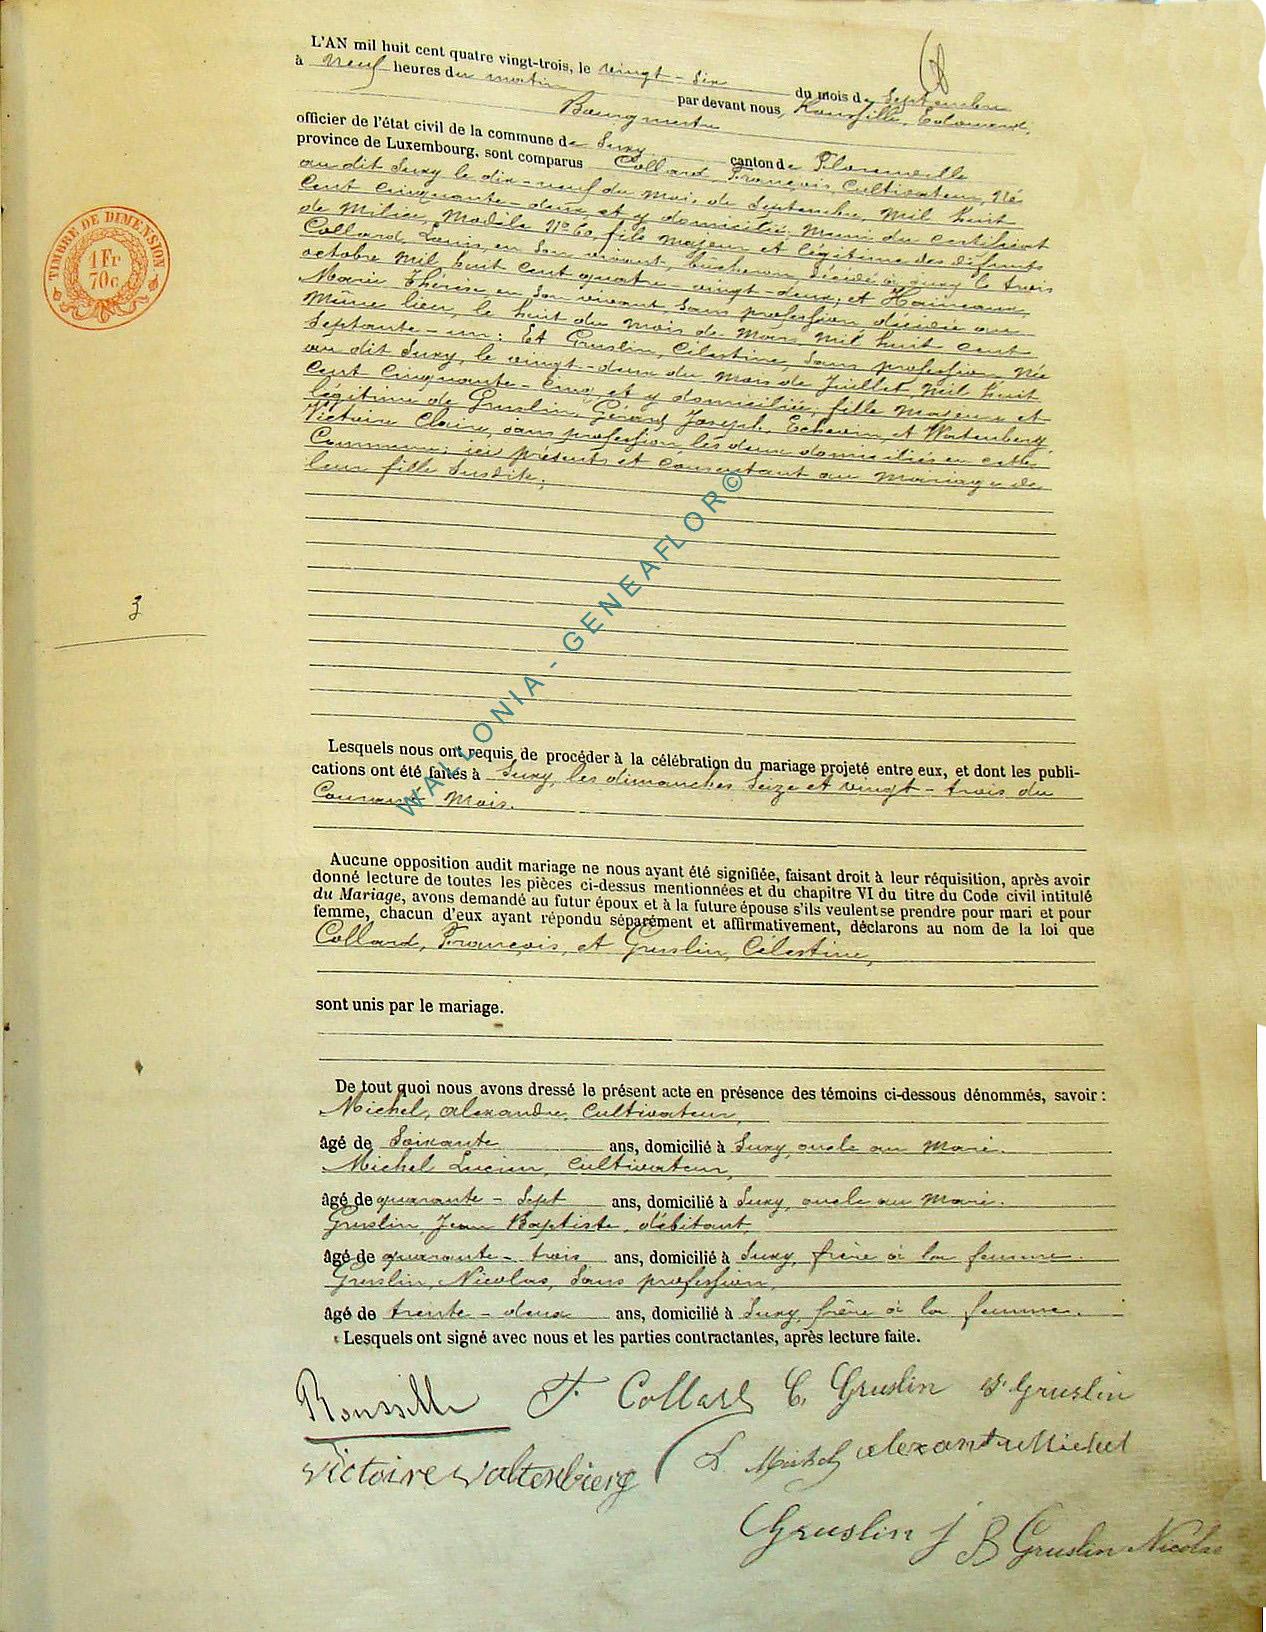 L'AN mil huit cent quatre vingt-trois, le vingt-six du mois de Septembre
à neuf heures du matin par devant nous,
Bourgmestre
officier de l'état civil de la commune de Suxy canton de Florenville
province de Luxembourg, sont comparus Collard, François, Cultivateur, Né
au dit Suxy le dix-neuf du mois de Septembre, mil huit
Cent cinquante-deux, et y domicilié, muni du certificat
de Milice, Modèle N° 60, fils majeur et légitime des défunts
Collard, Louis, en son vivant, bûcheron, décédé à Suxy le trois
octobre mil huit cent quatre-vingt-deux, et Haineaux,
Marie Thérèse en son vivant, sans profession, décédée au
même lieu, le huit du mois de Mars, mil huit cent
Septante-un: Et Gruslin, Célestine, sans profession, Née
au dit Suxy, le vingt-deux du mois de Juillet, mil huit
Cent Cinquante-cinq, et y domiciliée, fille majeure et
légitime de Gruslin, Gérard Joseph, Echevin, et Watenberg,
Victoire Claire, sans profession, les deux domiciliés en cette
Commune; ici présents et consentant au mariage de
leur fille susdite.
TIMBRE DE DIMENSION
1 Fr
70c
3
WALLONIA - GENEAFLOR©
Lesquels nous ont requis de procéder à la célébration du mariage projeté entre eux, et dont les publi-
cations ont été faites à Suxy, les dimanches Seize et vingt-trois du
Courant Mois.
Aucune opposition audit mariage ne nous ayant été signifiée, faisant droit à leur réquisition, après avoir
donné lecture de toutes les pièces ci-dessus mentionnées et du chapitre VI du titre du Code civil intitulé
du Mariage, avons demandé au futur époux et à la future épouse s'ils veulent se prendre pour mari et pour
femme, chacun d'eux ayant répondu séparément et affirmativement, déclarons au nom de la loi que
Collard, François, et Gruslin, Célestine,
sont unis par le mariage.
De tout quoi nous avons dressé le présent acte en présence des témoins ci-dessous dénommés, savoir :
Michel, alexandre, Cultivateur,
âgé de Soixante ans, domicilié à Suxy, oncle au Marié.
Michel Lucien, Cultivateur,
âgé de quarante-Sept ans, domicilié à Suxy, oncle au Marié.
Gruslin Jean Baptiste, débitant,
âgé de quarante-trois ans, domicilié à Suxy, frère à la femme.
Gruslin, Nicolas, Sans profession,
âgé de trente-deux ans, domicilié à Suxy, frère à la femme.
Lesquels ont signé avec nous et les parties contractantes, après lecture faite.
Roussille F Collard C. Gruslin Gruslin
Victoire Waltenbierg L Michel alexandre Michel
Gruslin J B Gruslin Nicolas